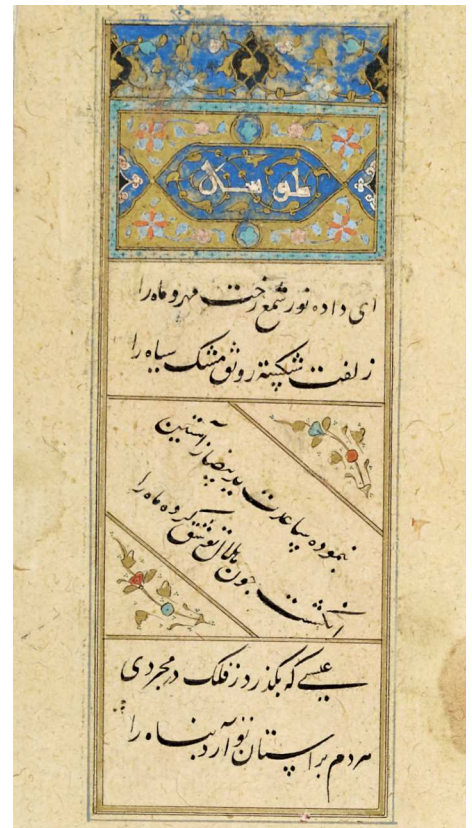 ای داده نور شمع رخت مهر و ماه را
زلفت شکسته رونق مشک سیاه را
بنموده ساعدت ید بیضا ز آستین
انگشت چون هلال تو شق کرده ماه را
عیسی که بگذرد ز فلک در مجردی
هر دم بر آستان تو آرد پناه را